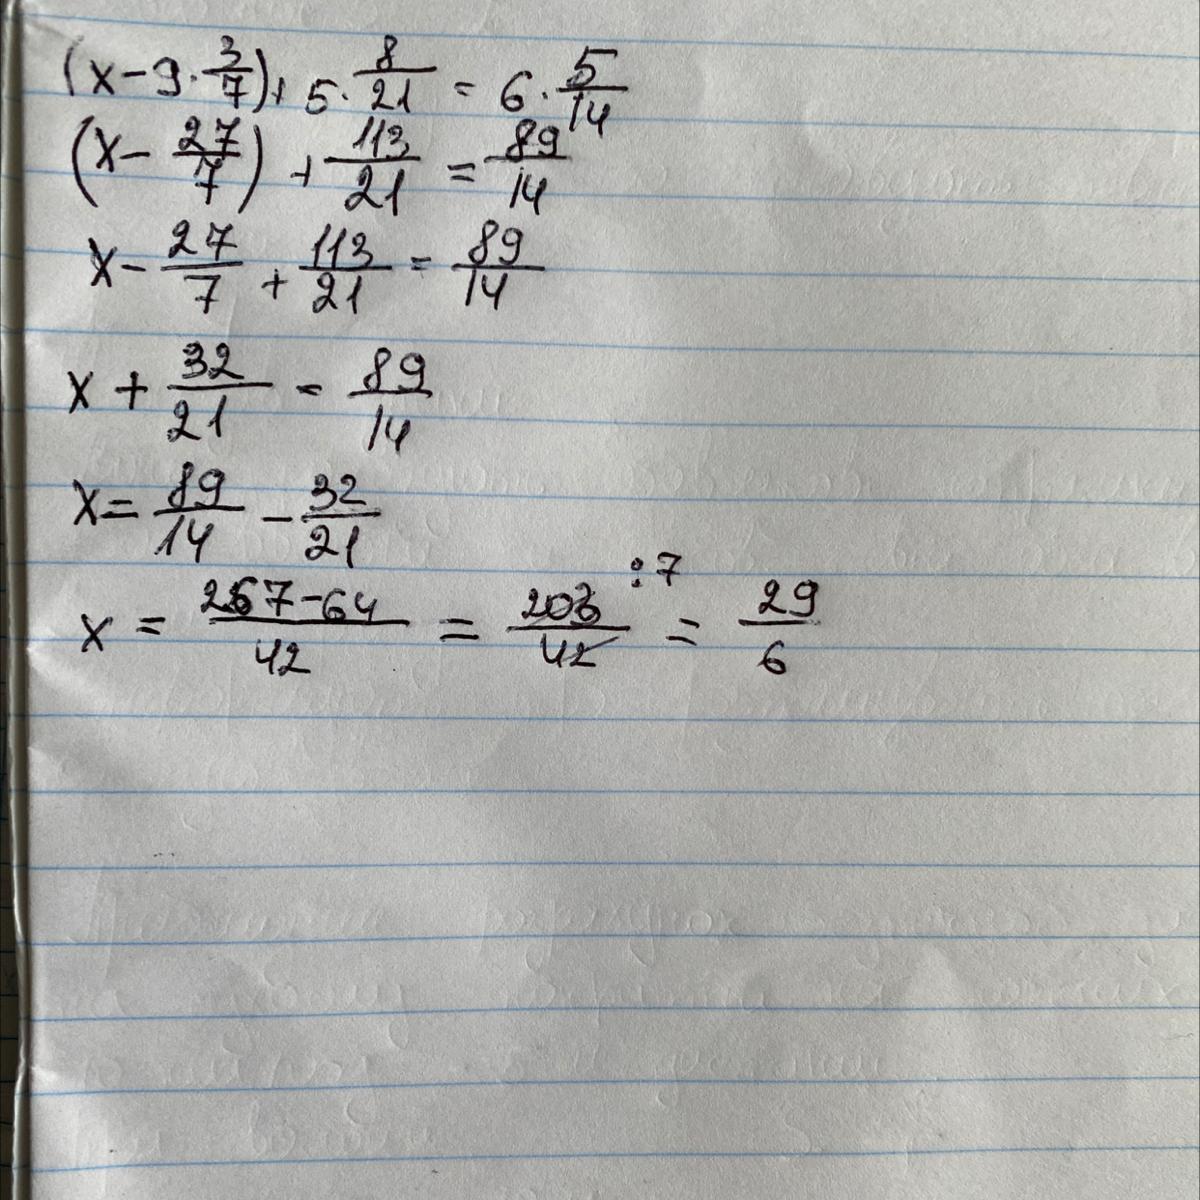 (x - 9 · 3/7) + 5 · 8/21 = 6 · 5/14
(x - 27/7) + 113/21 = 89/14
x - 27/7 + 113/21 = 89/14
x + 32/21 = 89/14
x = 89/14 - 32/21
x = (267 - 64)/42 = 203/42 : 7 = 29/6